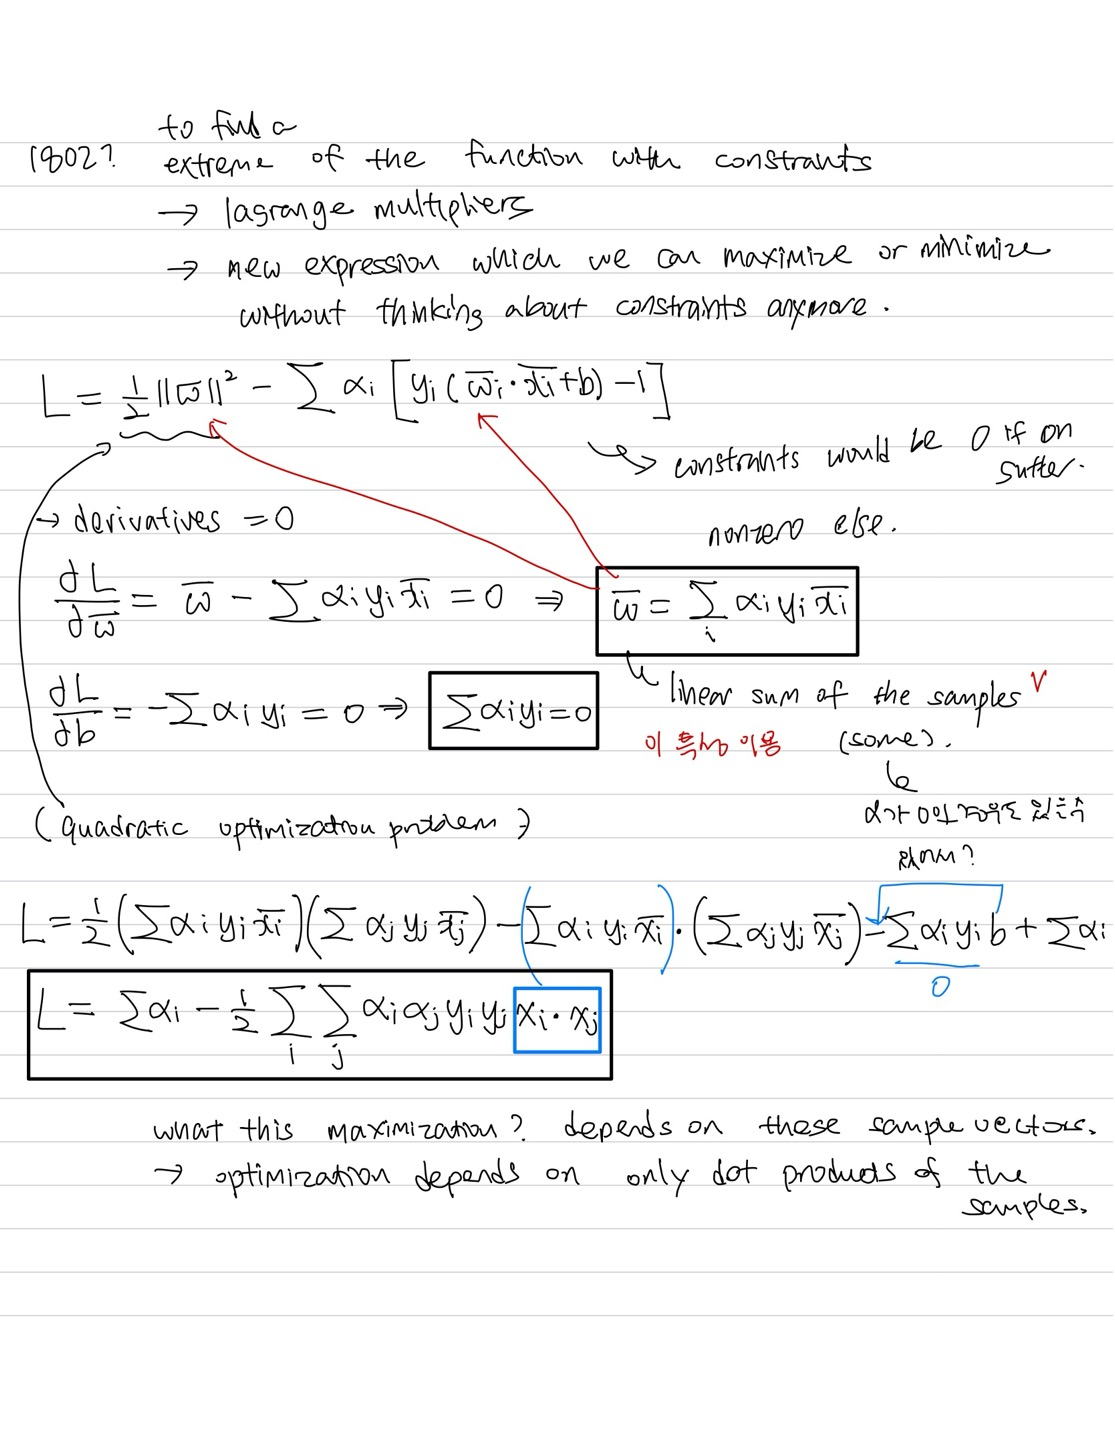 to find a
1802? extreme of the function with constrants
→ lagrange multipliers
→ new expression which we can maximize or minimize
without thinking about constraints anymore.
L = 1/2 ||w̅||² - Σ αi [yi (w̅i · x̅i + b) - 1]
constrants would be 0 if on
nonzero else.
→ derivatives = 0
∂L/∂w̅ = w̅ - Σ αi yi x̅i = 0 ⇒ w̅ = Σi αi yi x̅i
linear sum of the samples V
∂L/∂b = -Σ αi yi = 0 ⇒ Σ αi yi = 0
이 특성 이용 (some).
α가 0인 경우도 있을 수
있어서?
(quadratic optimization problem)
L = 1/2 (Σ αi yi x̅i)(Σ αj yj x̅j) - (Σ αi yi x̅i) · (Σ αj yj x̅j) - Σ αi yi b + Σ αi
0
L = Σ αi - 1/2 Σi Σj αi αj yi yj xi · xj
what this maximization? depends on these sample vectors.
→ optimization depends on only dot products of the
samples.